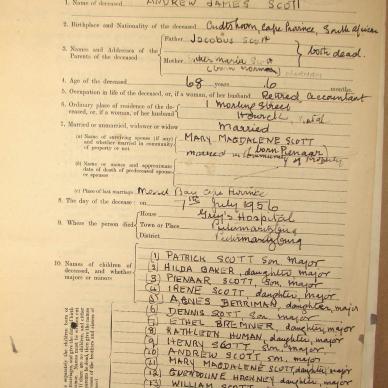 1. Name of deceased ANDREW JAMES SCOTT
2. Birthplace and Nationality of the deceased Oudtshoorn, Cape Province, South African
3. Names and Addresses of the Parents of the deceased
Father Jacobus Scott
Mother Maria Scott
both dead.
4. Age of the deceased 68 years 6 months
5. Occupation in life of the deceased, or, if a woman, of her husband Retired accountant
6. Ordinary place of residence of the deceased, or, if a woman, of her husband
1 Morling Street
Howick, Natal
7. Married or unmarried, widower or widow Married
(a) Name of surviving spouse (if any) and whether married in community of property or not
MARY MAGDALENE SCOTT
(born Pienaar)
married in Community of Property
(b) Name or names and approximate date of death of predeceased spouse or spouses
(c) Place of last marriage Mossel Bay, Cape Province
8. The day of the decease: on 7th July 1956
9. Where the person died
House Grey's Hospital
Town or Place Pietermaritzburg
District Pietermaritzburg
10. Names of children of deceased, and whether majors or minors
(1) PATRICK SCOTT son major
(2) HILDA BAKER, daughter, major
(3) PIENAAR SCOTT, son, major
(4) IRENE SCOTT, daughter, major
(5) AGNES BERRIMAN, daughter, major
(6) DENNIS SCOTT son major
(7) ETHEL BREMNER, daughter, major
(8) KATHLEEN HUMAN, daughter, major
(9) HENRY SCOTT, son, major
(10) ANDREW SCOTT son, major
(11) MARY MAGDALENE SCOTT, daughter, major
(12) GWENDOLINE HACKNEY, daughter, major
(13) WILLIAM SCOTT